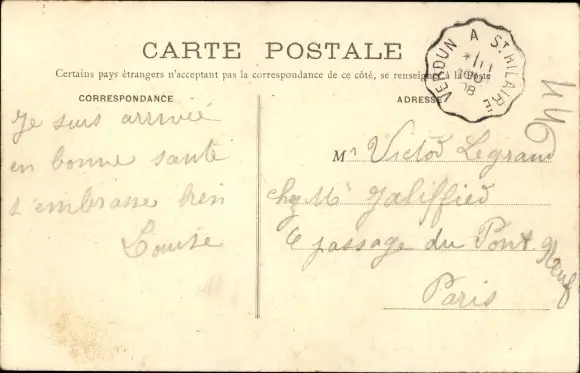 CARTE POSTALE
Certains pays étrangers n'acceptant pas la correspondance de ce côté, se renseigner à la Poste
CORRESPONDANCE
Je suis arrivée
en bonne santé
t'embrasse bien
Louise
ADRESSE
Mr Victor Legrand
chez Mr Jaliffied
6 passage du Pont Neuf
Paris
VERDUN A ST HILAIRE
08